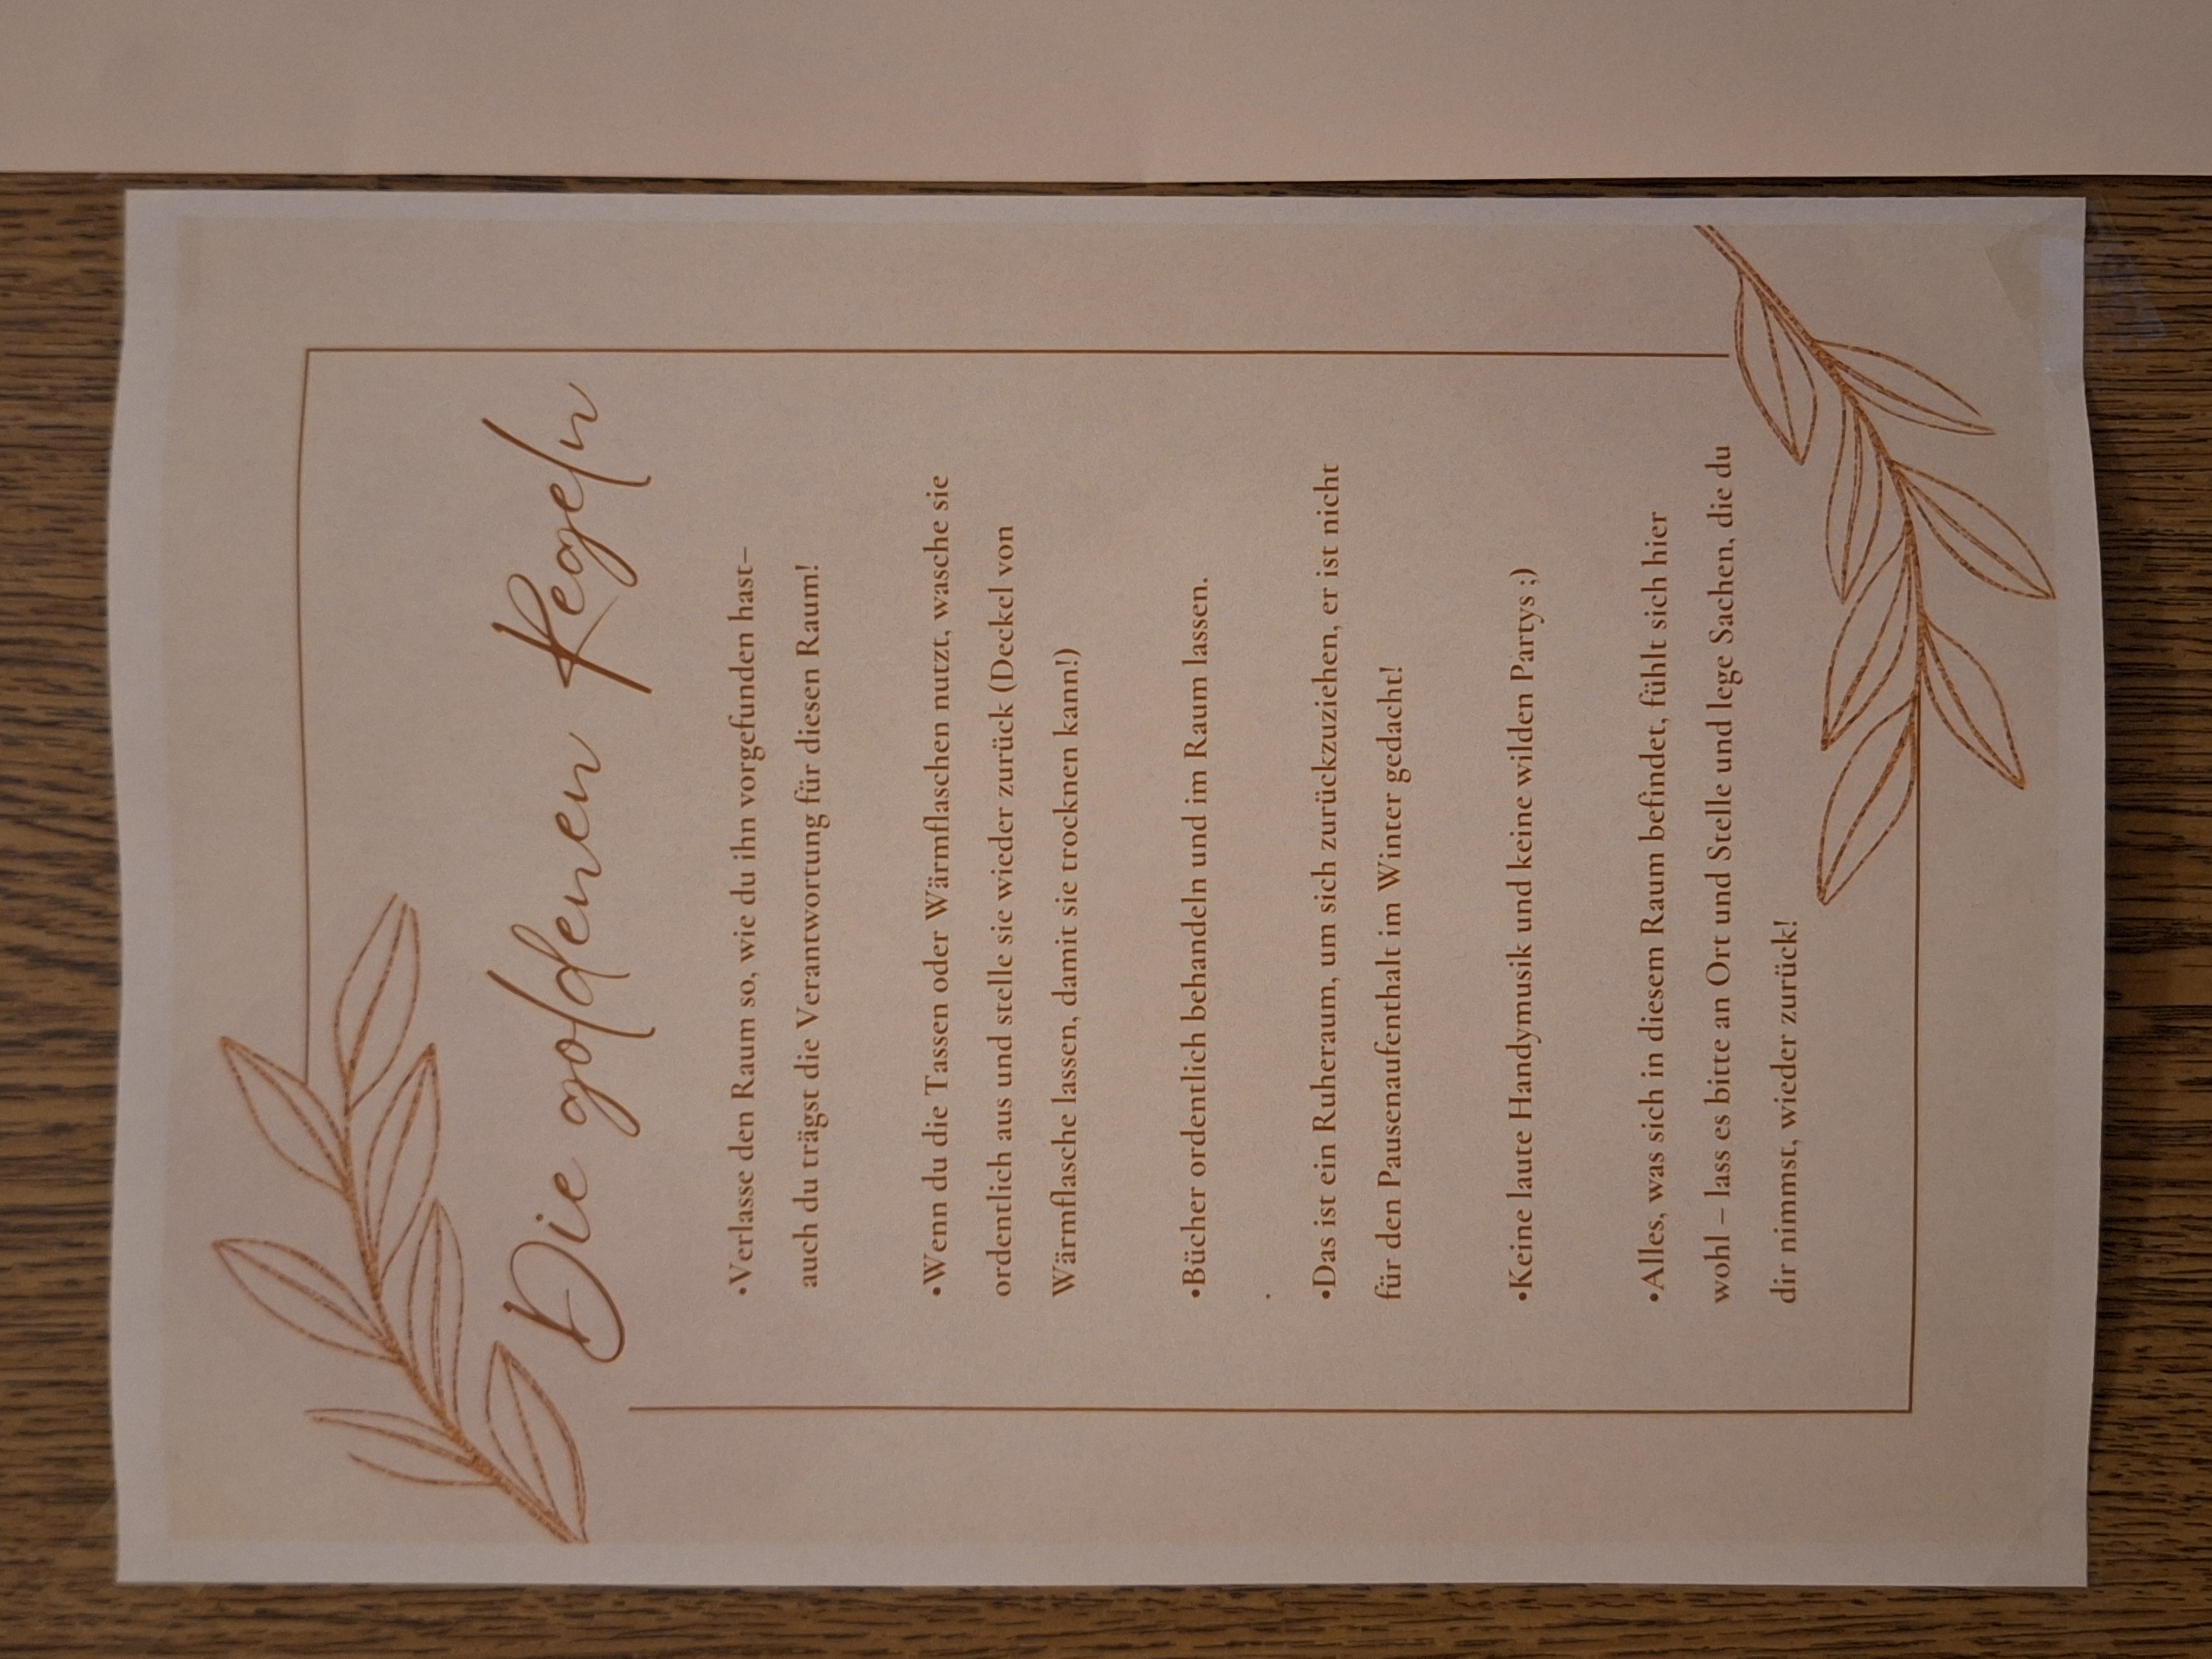 Die goldenen Regeln
•Verlasse den Raum so, wie du ihn vorgefunden hast–
auch du trägst die Verantwortung für diesen Raum!
•Wenn du die Tassen oder Wärmflaschen nutzt, wasche sie
ordentlich aus und stelle sie wieder zurück (Deckel von
Wärmflasche lassen, damit sie trocknen kann!)
•Bücher ordentlich behandeln und im Raum lassen.
•Das ist ein Ruheraum, um sich zurückzuziehen, er ist nicht
für den Pausenaufenthalt im Winter gedacht!
•Keine laute Handymusik und keine wilden Partys ;)
•Alles, was sich in diesem Raum befindet, fühlt sich hier
wohl – lass es bitte an Ort und Stelle und lege Sachen, die du
dir nimmst, wieder zurück!